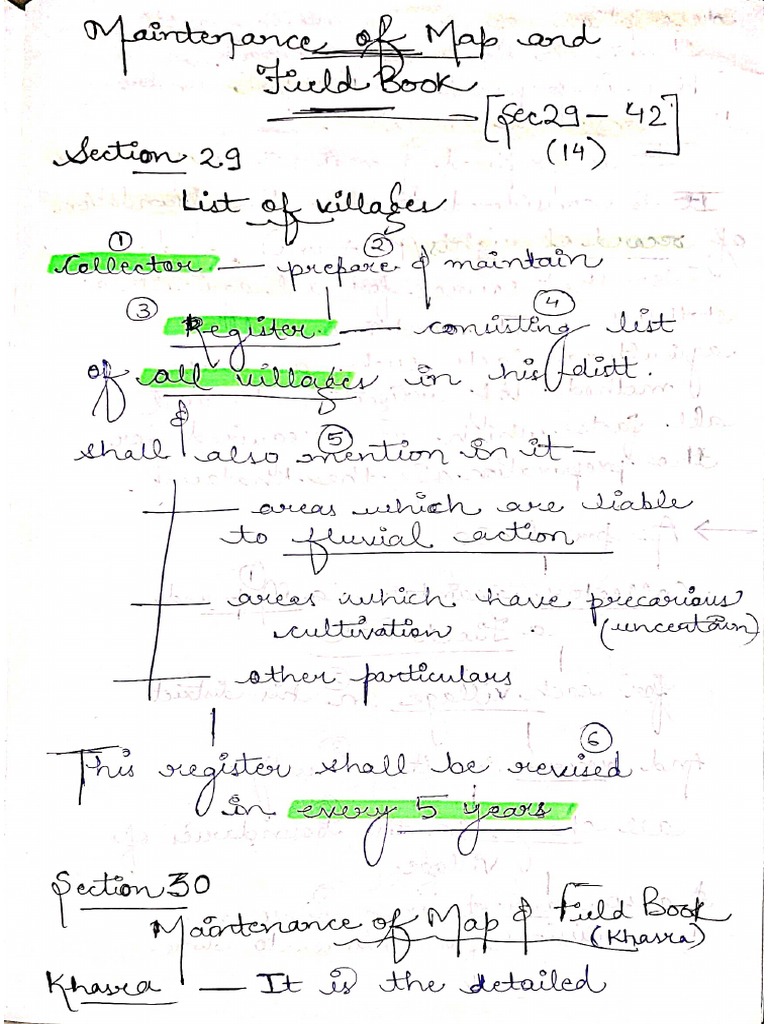 Maintenance of Map and
Field Book
[Sec 29 - 42]
(14)
Section 29
List of villages
① ②
Collector — prepare & maintain
③ ④
Register — consisting list
of all villages in his distt.
&
⑤
shall also mention in it -
areas which are liable
to fluvial action
areas which have precarious
cultivation (uncertain)
other particulars
⑥
This register shall be revised
in every 5 years
Section 30
Maintenance of Map & Field Book
(Khasra)
Khasra — It is the detailed